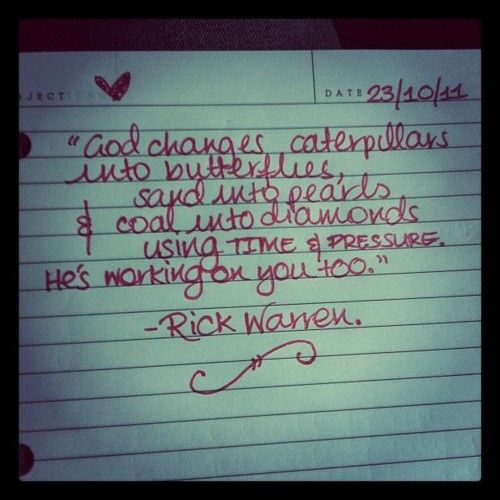 JECT
DATE 23/10/11
"God changes caterpillars
into butterflies,
sand into pearls
& coal into diamonds
using TIME & PRESSURE.
He's working on you too."
-Rick Warren.